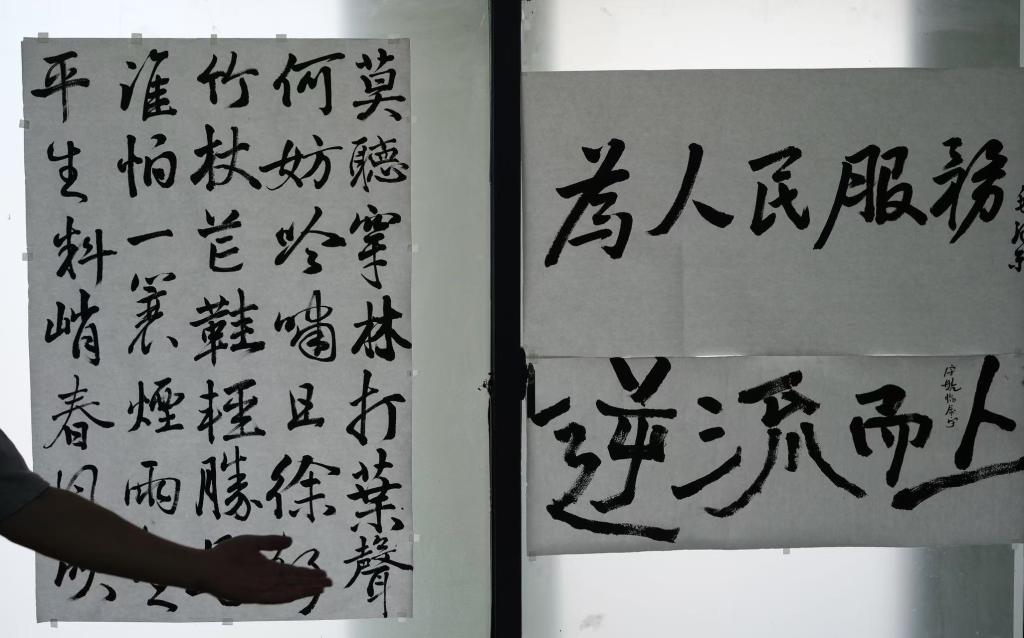 莫聽穿林打葉聲
何妨吟嘯且徐
竹杖芒鞋輕勝
誰怕一蓑煙雨
平生料峭春風吹
為人民服務
逆流而上